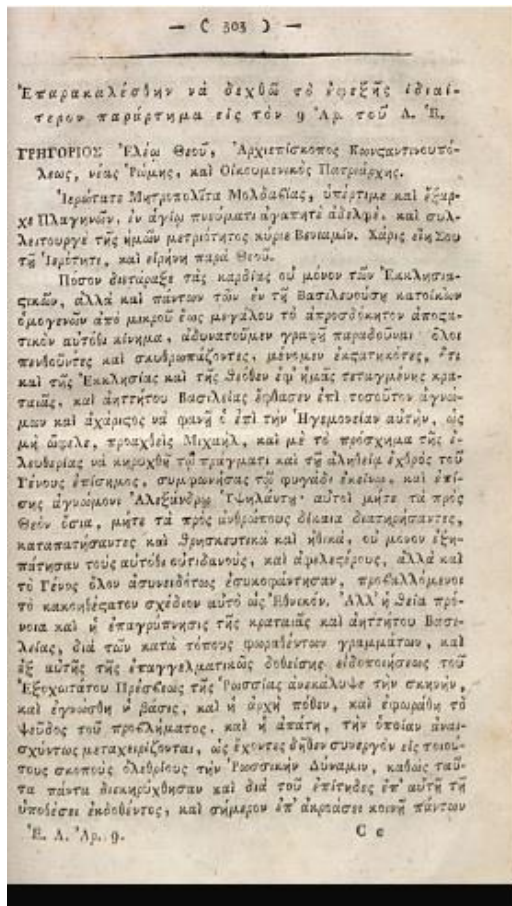 — ( 303 ) —
Ἐπαρακαλέσθην νὰ δεχθῶ τὸ ἐφεξῆς ἰδιαί-
τερον παράρτημα εἰς τὸν 9 Ἀρ. τοῦ Λ. Ἑ.
ΓΡΗΓΟΡΙΟΣ Ἐλέῳ Θεοῦ, Ἀρχιεπίσκοπος Κωνϛαντινουπό-
λεως, νέας Ῥώμης, καὶ Οἰκουμενικὸς Πατριάρχης.
Ἱερώτατε Μητροπολῖτα Μολδαβίας, ὑπέρτιμε καὶ ἔξαρ-
χε Πλαγηνῶν, ἐν ἁγίῳ πνεύματι ἀγαπητὲ ἀδελφὲ, καὶ συλ-
λειτουργὲ τῆς ἡμῶν μετριότητος κύριε Βενιαμίν. Χάρις εἴη Σου
τῇ Ἱερότητι, καὶ εἰρήνη παρὰ Θεοῦ.
Πόσον διετάραξε τὰς καρδίας οὐ μόνον τῶν Ἐκκλησια-
ϛικῶν, ἀλλὰ καὶ πάντων τῶν ἐν τῇ Βασιλευούσῃ κατοίκων
ὁμογενῶν ἀπὸ μικροῦ ἕως μεγάλου τὸ ἀπροσδόκητον ἀποϛα-
τικὸν αὐτόθι κίνημα, ἀδυνατοῦμεν γραφῇ παραδοῦναι· ὅλοι
πενθοῦντες καὶ σκυθρωπάζοντες, μένομεν ἐκϛατικότες, ὅτι
καὶ τῆς Ἐκκλησίας καὶ τῆς ϑεόθεν ἐφ' ἡμᾶς τεταγμένης κρα-
ταιᾶς, καὶ ἀηττήτου Βασιλείας ἔφθασεν ἐπὶ τοσοῦτον ἀγνώ-
μων καὶ ἀχάριϛος νὰ φανῇ ὁ ἐπὶ τὴν Ἡγεμονείαν αὐτὴν, ὡς
μὴ ὤφελε, προαχθεὶς Μιχαὴλ, καὶ μὲ τὸ πρόσχημα τῆς ἐ-
λευθερίας νὰ κηρυχθῇ τῷ πράγματι καὶ τῇ ἀληθείᾳ ἐχθρὸς τοῦ
Γένους ἐπίσημος, συμφωνήσας τῷ φυγάδι ἐκείνῳ, καὶ ἐπί-
σης ἀγνώμονι Ἀλεξάνδρῳ Ὑψηλάντῃ· αὐτοὶ μήτε τὰ πρὸς
Θεὸν ὅσια, μήτε τὰ πρὸς ἀνθρώπους δίκαια διατηρήσαντες,
καταπατήσαντες καὶ ϑρησκευτικὰ καὶ ἠθικὰ, οὐ μόνον ἐξη-
πάτησαν τοὺς αὐτόθι οὐτιδανοὺς, καὶ ἀφελεϛέρους, ἀλλὰ καὶ
τὸ Γένος ὅλον ἀσυνειδότως ἐσυκοφάντησαν, προβαλλόμενοι
τὸ κακοηθέϛατον σχέδιον αὐτὸ ὡς Ἐθνικόν. Ἀλλ' ἡ ϑεία πρό-
νοια καὶ ἡ ἐπαγρύπνησις τῆς κραταιᾶς καὶ ἀηττήτου Βασι-
λείας, διὰ τῶν κατὰ τόπους φωραθέντων γραμμάτων, καὶ
ἐξ αὐτῆς τῆς ἐπαγγελματικῶς δοθείσης εἰδοποιήσεως τοῦ
Ἐξοχωτάτου Πρέσβεως τῆς Ῥωσσίας ἀνεκάλυψε τὴν σκηνὴν,
καὶ ἐγνώσθη ἡ βάσις, καὶ ἡ ἀρχὴ πόθεν, καὶ ἐφωράθη τὸ
ψεῦδος τοῦ προβλήματος, καὶ ἡ ἀπάτη, τὴν ὁποίαν ἀναι-
σχύντως μεταχειρίζονται, ὡς ἔχοντες δῆθεν συνεργὸν εἰς τοιού-
τους σκοποὺς ὀλεθρίους τὴν Ῥωσσικὴν Δύναμιν, καθὼς ταῦ-
τα πάντα διεκηρύχθησαν καὶ διὰ τοῦ ἐπίτηδες ἐπ' αὐτῇ τῇ
ὑποθέσει ἐκδοθέντος, καὶ σήμερον ἐπ' ἀκροάσει κοινῇ πάντων
Ἑ. Λ. Ἀρ. 9. C c